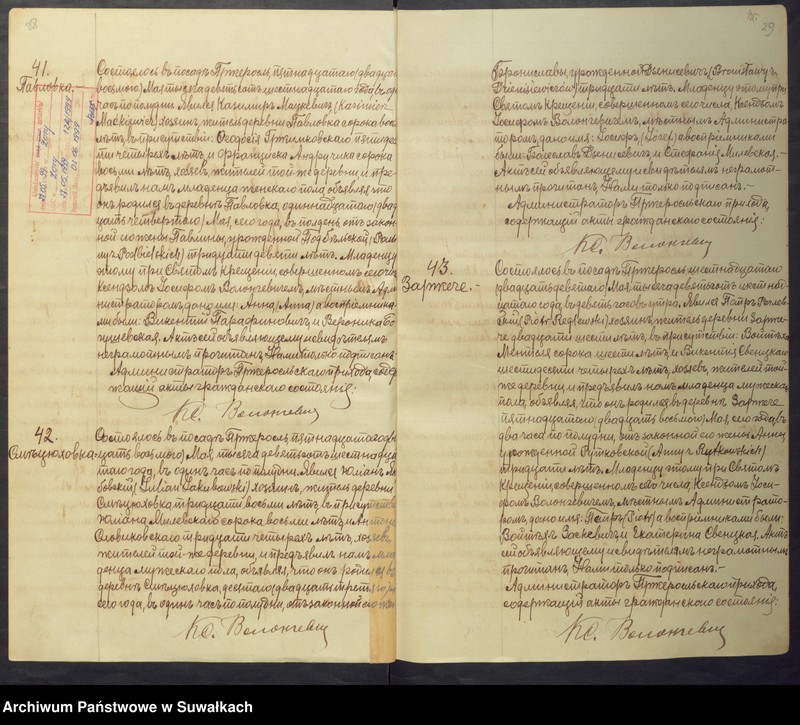 28.
41.
Павловка.
Состоялось въ посадѣ Пржеросль, пятнадцатаго (двадцать
восьмого) Мая тысяча девятьсотъ шестнадцатаго года въ
часъ по полудни. Явился Казимиръ Мацкевичъ (Kazimierz
Mackiewicz) хозяинъ, житель деревни Павловка сорока
лѣтъ, въ присутствіи:
четырехъ лѣтъ и Франциска Андручика сорока
восьми лѣтъ, хозяевъ, жителей той-же деревни и пре-
дъявилъ намъ младенца женскаго пола, объявляя что
онъ родился въ деревнѣ Павловка, одиннадцатаго (двад-
цать четвертаго) Мая, сего года, въ полдень, отъ закон-
ной его жены Павлины, урожденной Подбѣльской
Podbielskich) тридцати девяти лѣтъ. Младенцу
этому при Святомъ Крещеніи, совершенномъ сего числа
Ксендзомъ Іосифомъ Волонгевичемъ, мѣстнымъ Адми-
нистраторомъ, дано имя: Анна (Anna) а воспріемника-
ми были: Викентій Парафиновичъ и Вероника
Актъ сей объявляющему и свидѣтелямъ
неграмотнымъ прочитанъ, Нами только подписанъ.
Администраторъ Пржеросльскаго прихода, содер-
жащій акты гражданскаго состоянія:
Кс. Волонгевич
42.
Смѣцюховка.
Состоялось въ посадѣ Пржеросль, пятнадцатаго (двад-
цать восьмого) Мая, тысяча девятьсотъ шестнадца-
таго года, въ одинъ часъ по полудни. Явился Юліанъ
(Julian Jakubowski) хозяинъ, житель деревни
Смѣцюховка тридцати восьми лѣтъ, въ присутствіи
Юліана Милевскаго сорока восьми лѣтъ и Антона
Словиковскаго тридцати четырехъ лѣтъ, хозяевъ
жителей той-же деревни, и предъявилъ намъ мла-
денца мужескаго пола, объявляя, что онъ родился въ
деревнѣ Смѣцюховка, десятаго (двадцать третьяго)
сего года, въ одинъ часъ по полудни, отъ законной его жены
Кс. Волонгевич
29
Брониславы, урожденной Дзенисевичъ (Bronisławy z
тридцати лѣтъ. Младенцу этому при
Святомъ Крещеніи, совершенномъ сего числа, Ксендзомъ
Іосифомъ Волонгевичемъ, мѣстнымъ Администра-
торомъ, дано имя: Іосифъ (Józef) а воспріемниками
были: Болеславъ Дзенисевичъ и Стефанія Милевская.-
Актъ сей объявляющему и свидѣтелямъ неграмот-
нымъ прочитанъ, Нами только подписанъ.-
Администраторъ Пржеросльскаго прихода,
содержащій акты гражданскаго состоянія:
Кс. Волонгевич
43.
Заржече.-
Состоялось въ посадѣ Пржеросль шестнадцатаго
(двадцать девятаго) Мая, тысяча девятьсотъ шестнад-
цатаго года, въ девять часовъ утра. Явился Петръ
(Piotr) хозяинъ, житель деревни Зарже-
че двадцати шести лѣтъ, въ присутствіи: Войтѣха
сорока шести лѣтъ, и Викентія Свенцкаго
шестидесяти четырехъ лѣтъ, хозяевъ, жителей той
же деревни, и предъявилъ намъ младенца мужеска-
пола, объявляя, что онъ родился въ деревнѣ Заржече
пятнадцатаго (двадцать восьмого) Мая, сего года, въ
два часа по полудни, отъ законной его жены Анны,
урожденной Рутковской (Anny z Rutkowskich)
тридцати лѣтъ. Младенцу этому при Святомъ
Крещеніи, совершенномъ сего числа, Ксендзомъ Іоси-
фомъ Волонгевичемъ, мѣстнымъ Администрато-
ромъ, дано имя: Петръ (Piotr) а воспріемниками были:
Войтѣхъ и Екатерина Свенцкая. Актъ
сей объявляющему и свидѣтелямъ неграмотнымъ
прочитанъ, Нами только подписанъ.-
Администраторъ Пржеросльскаго прихода,
содержащій акты гражданскаго состоянія:
Кс. Волонгевич
Archiwum Państwowe w Suwałkach